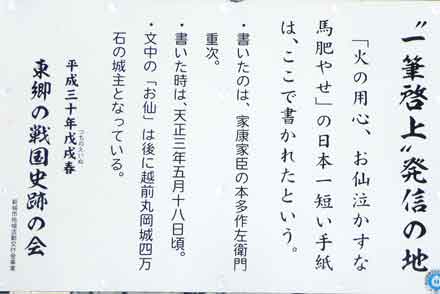 “一筆啓上”発信の地
「火の用心、お仙泣かすな
馬肥やせ」の日本一短い手紙
は、ここで書かれたという。
・書いたのは、家康家臣の本多作左衛門
重次。
・書いた時は、天正三年五月十八日頃。
・文中の「お仙」は後に越前丸岡城四万
石の城主となっている。
平成三十年戊戌春
つちのえいぬ
東郷の戦国史跡の会
新城市地域活動交付金事業